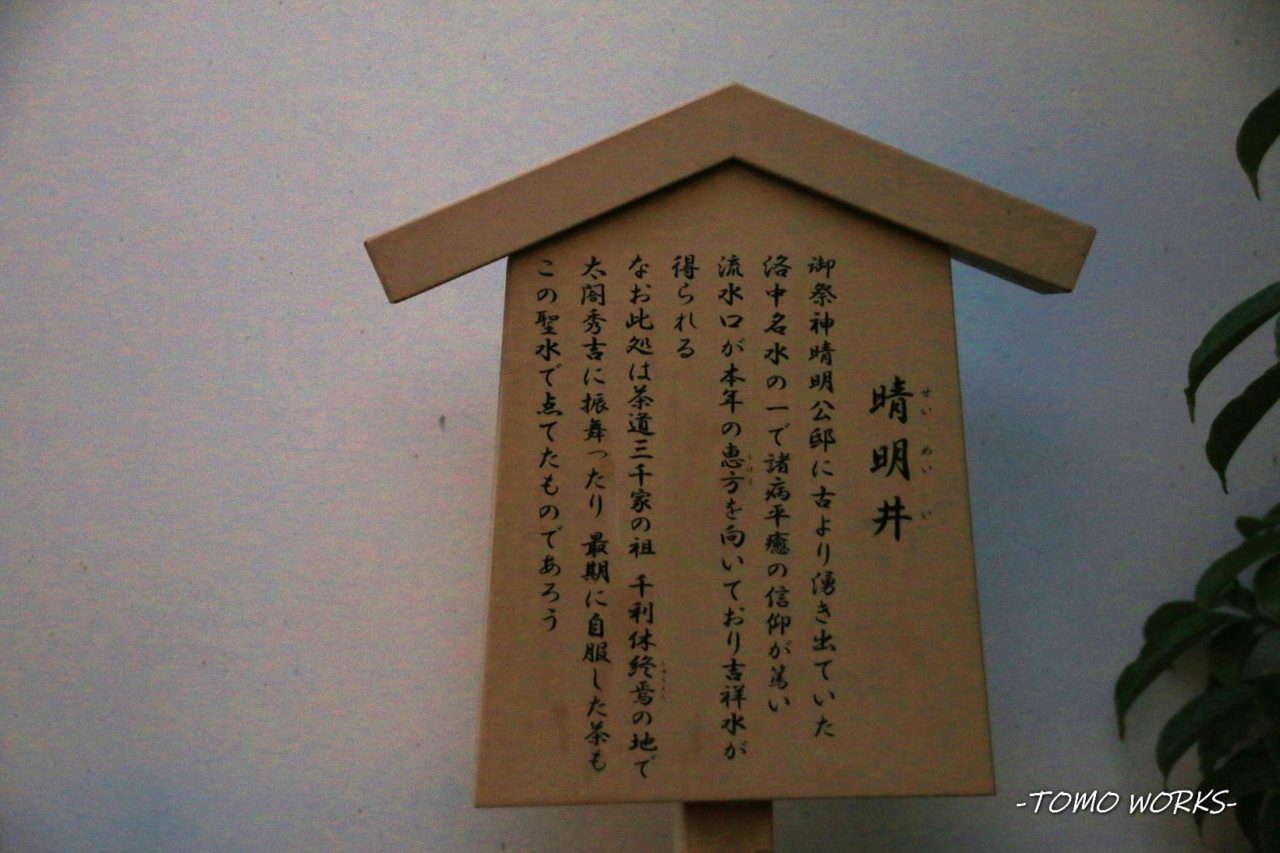 晴明井
せいめいい
御祭神晴明公邸に古より湧き出ていた
洛中名水の一で諸病平癒の信仰が篤い
流水口が本年の恵方を向いており吉祥水が
得られる
なお此処は茶道三千家の祖 千利休終焉の地で
太閤秀吉に振舞ったり 最期に自服した茶も
この聖水で点てたものであろう
-TOMO WORKS-